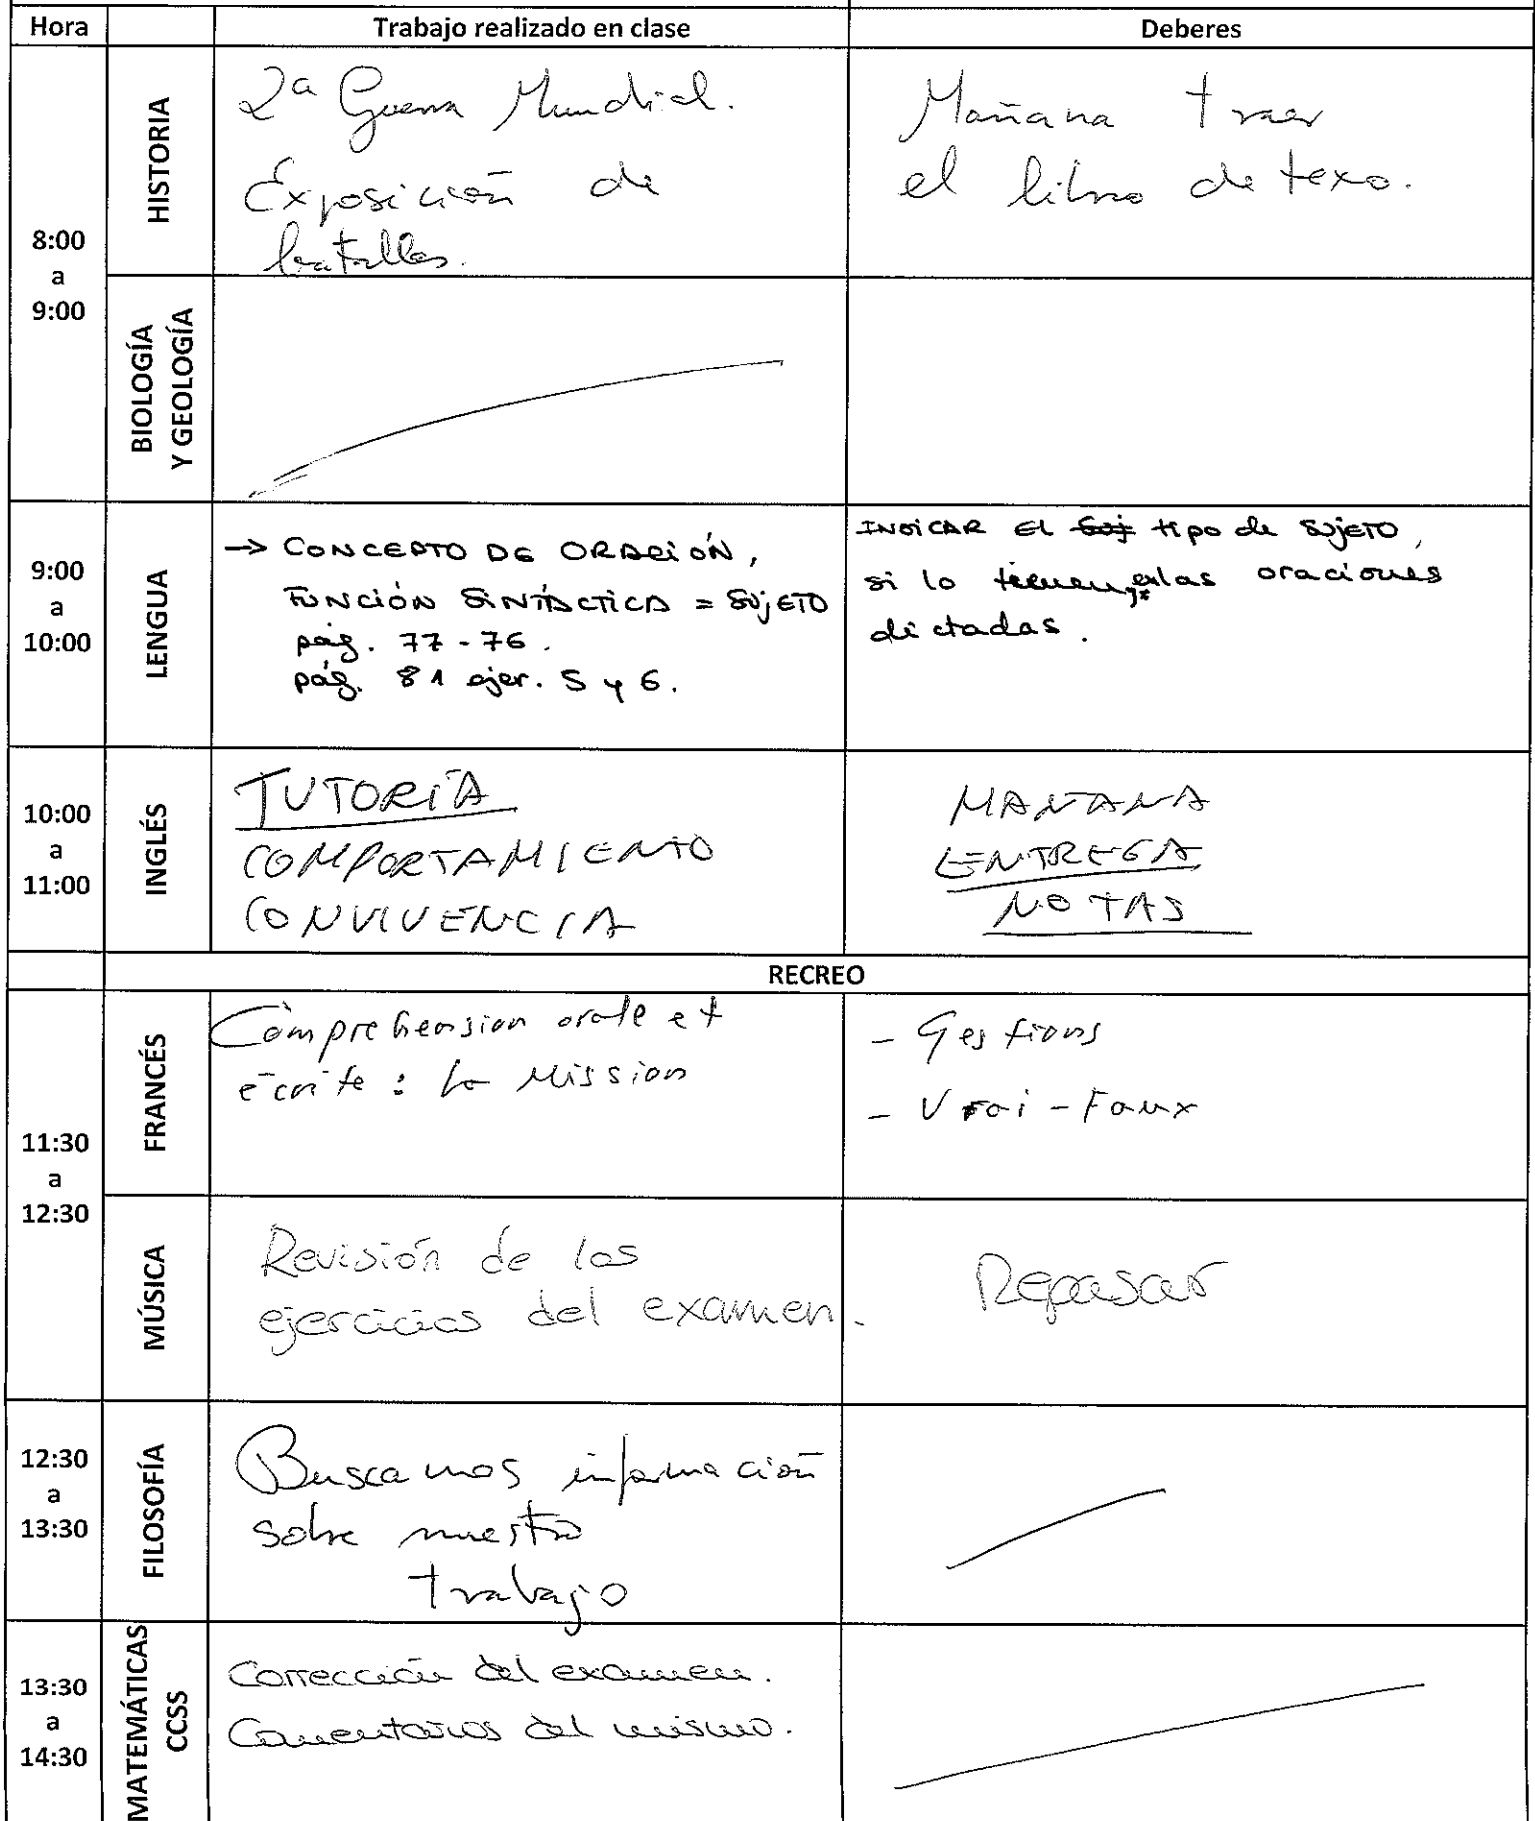 Hora Trabajo realizado en clase Deberes
8:00
a
9:00
HISTORIA
2ª Guerra Mundial.
Exposición de
batallas.
Mañana traer
el libro de texo.
BIOLOGÍA
Y GEOLOGÍA
9:00
a
10:00
LENGUA
→ CONCEPTO DE ORACIÓN,
FUNCIÓN SINTÁCTICA = SUJETO
pág. 77-76.
pág. 81 ejer. 5 y 6.
INDICAR EL tipo de SUJETO,
si lo tienen, en las oraciones
dictadas.
10:00
a
11:00
INGLÉS
TUTORÍA
COMPORTAMIENTO
CONVIVENCIA
MAÑANA
ENTREGA
NOTAS
RECREO
11:30
a
12:30
FRANCÉS
Compréhension orale et
écrite : la Mission
- Vrai - Faux
MÚSICA
Revisión de los
ejercicios del examen.
Repasar
12:30
a
13:30
FILOSOFÍA
Buscamos información
sobre nuestro
trabajo
13:30
a
14:30
MATEMÁTICAS
CCSS
Corrección del examen.
Comentarios del mismo.